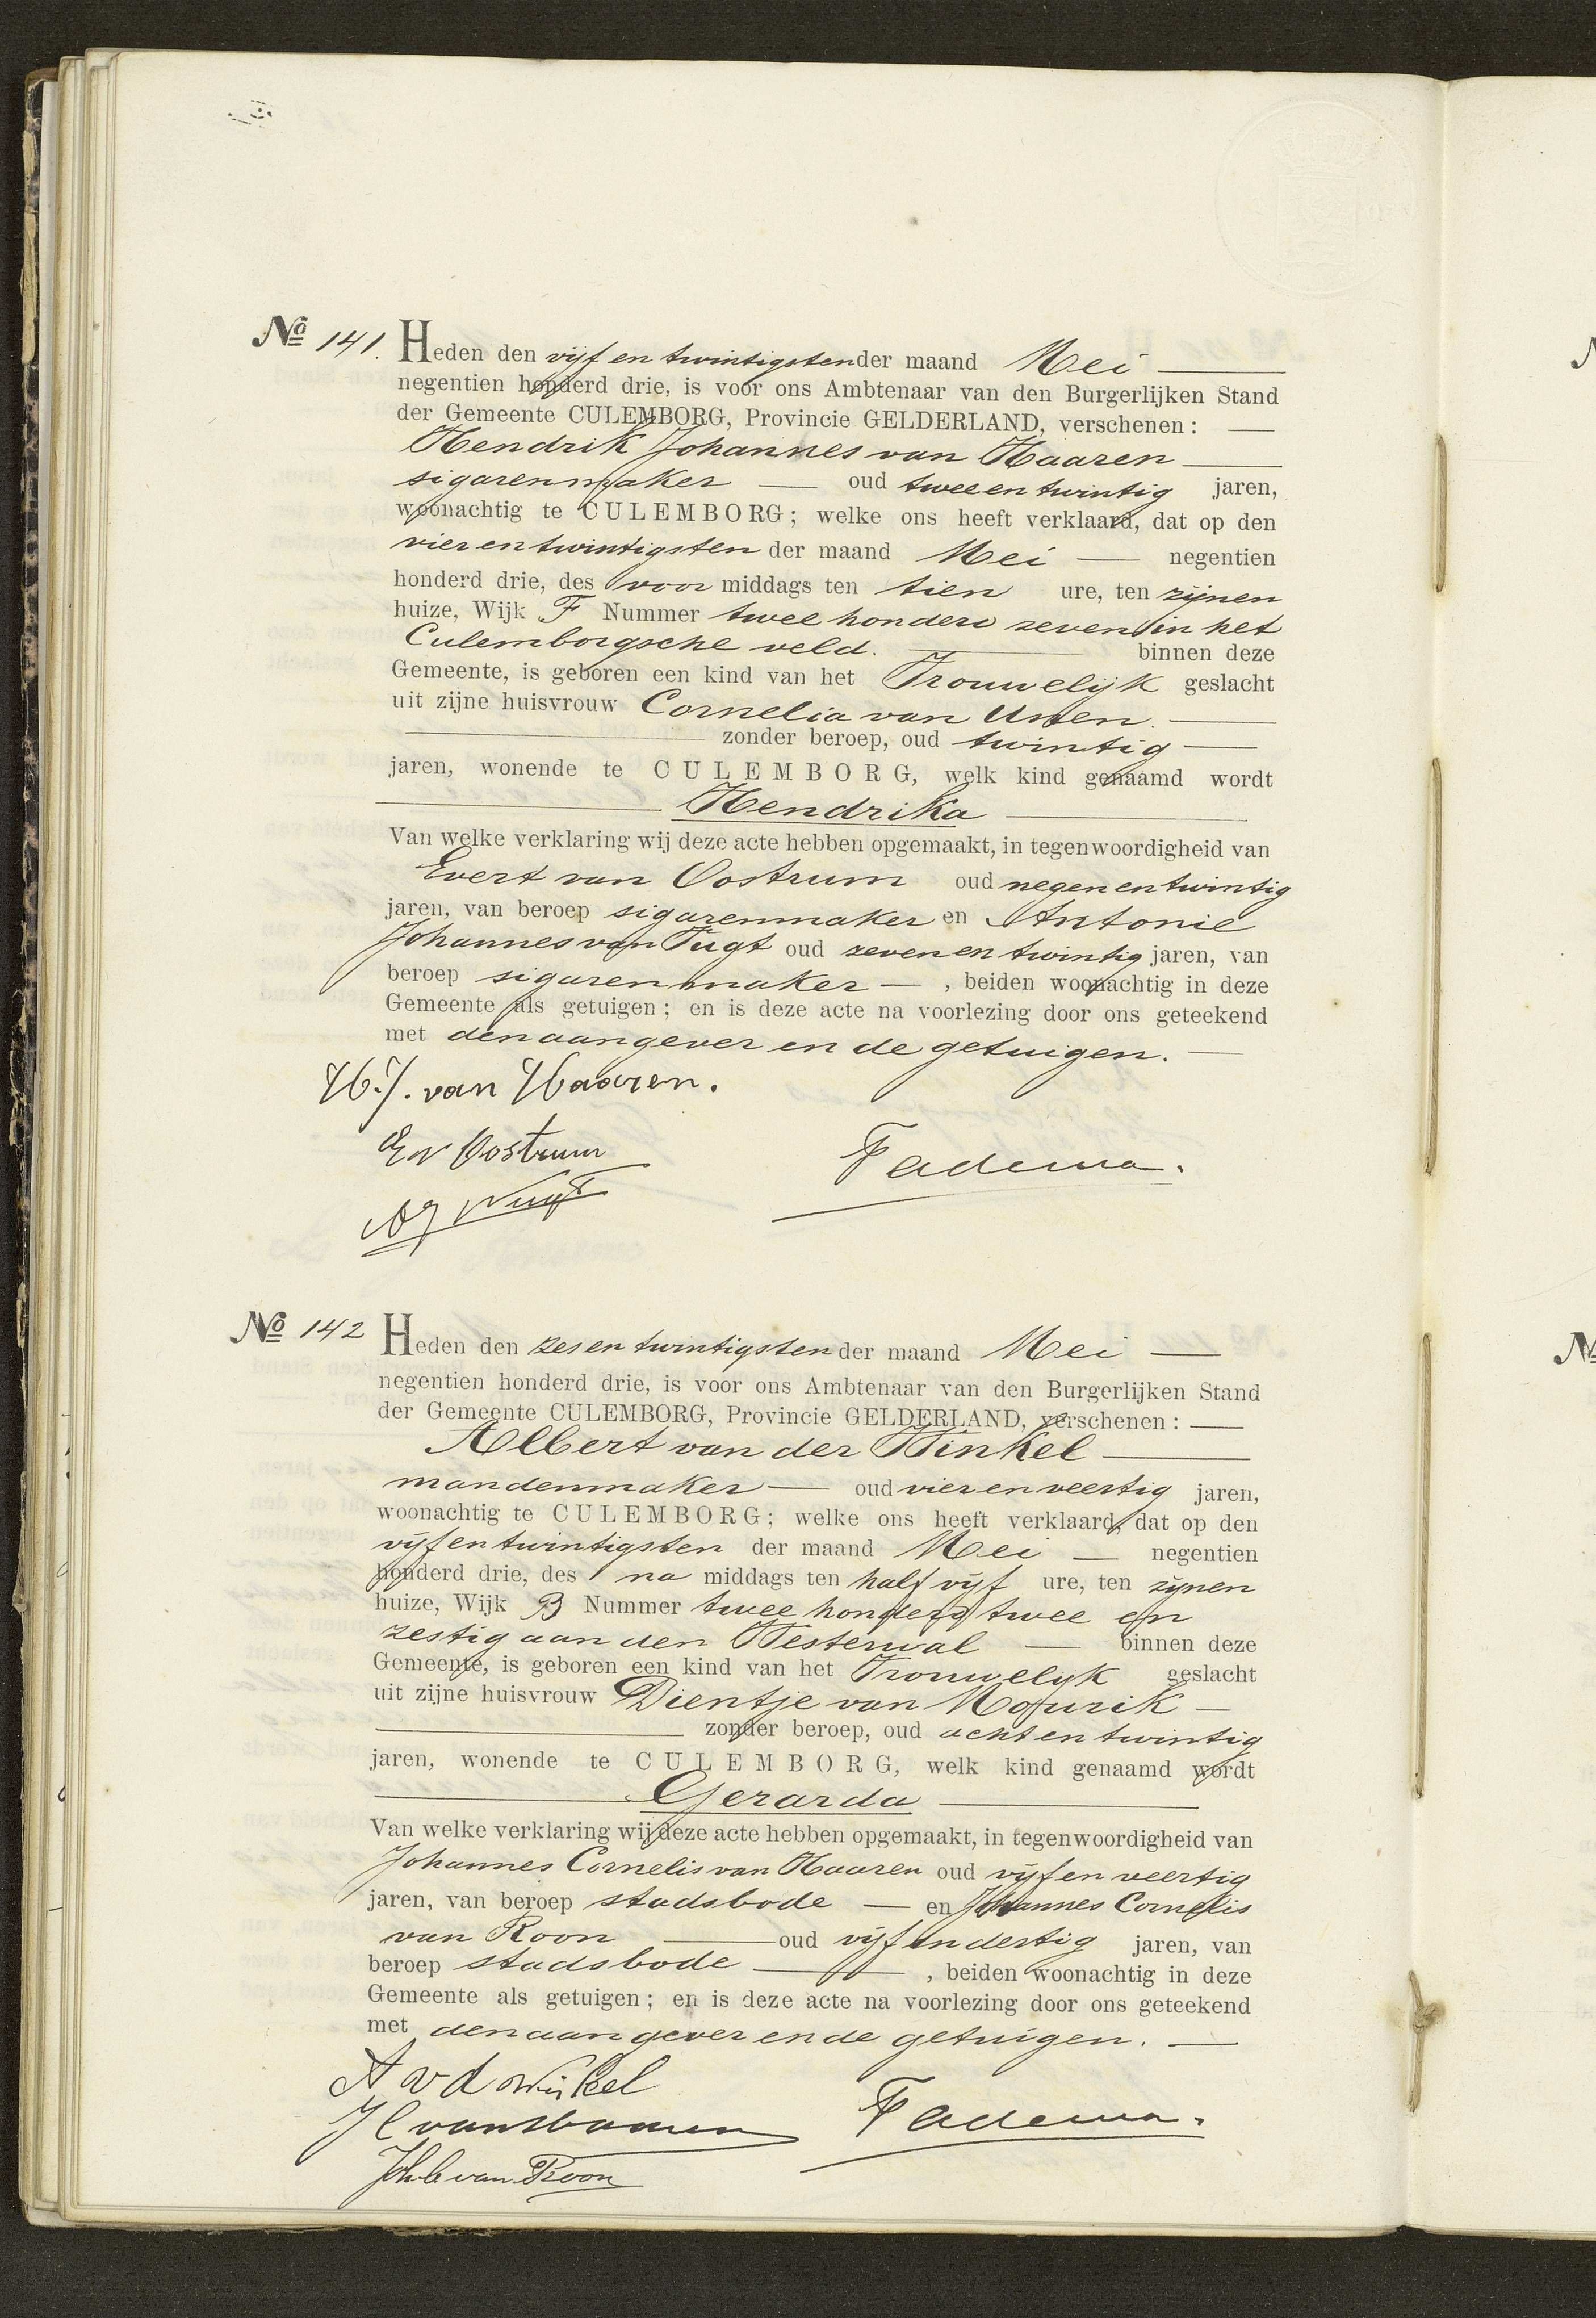 Nº 141. Heden den vijf en twintigsten der maand Mei
negentien honderd drie, is voor ons Ambtenaar van den Burgerlijken Stand
der Gemeente CULEMBORG, Provincie GELDERLAND, verschenen:
Hendrik Johannes van Haaren
sigarenmaker oud twee en twintig jaren,
woonachtig te CULEMBORG; welke ons heeft verklaard, dat op den
vier en twintigsten der maand Mei negentien
honderd drie, des voor middags ten tien ure, ten zijnen
huize, Wijk F Nummer twee honderd zeven in het
Culemborgsche veld. binnen deze
Gemeente, is geboren een kind van het Vrouwelijk geslacht
uit zijne huisvrouw Cornelia van
zonder beroep, oud twintig
jaren, wonende te CULEMBORG, welk kind genaamd wordt
Hendrika
Van welke verklaring wij deze acte hebben opgemaakt, in tegenwoordigheid van
Evert van Oostrum oud negen en twintig
jaren, van beroep sigarenmaker en Antonie
Johannes van Vugt oud zeven en twintig jaren, van
beroep sigarenmaker, beiden woonachtig in deze
Gemeente als getuigen; en is deze acte na voorlezing door ons geteekend
met den aangever en de getuigen.
H.J. van Haaren.
E v Oostrum
Fadema.
AJ v Vugt
Nº 142 Heden den zes en twintigsten der maand Mei
negentien honderd drie, is voor ons Ambtenaar van den Burgerlijken Stand
der Gemeente CULEMBORG, Provincie GELDERLAND, verschenen:
Albert van der Winkel
mandenmaker oud vier en veertig jaren,
woonachtig te CULEMBORG; welke ons heeft verklaard, dat op den
vijf en twintigsten der maand Mei negentien
honderd drie, des na middags ten half vijf ure, ten zijnen
huize, Wijk B Nummer twee honderd twee en
zestig aan den Westerwal binnen deze
Gemeente, is geboren een kind van het Vrouwelijk geslacht
uit zijne huisvrouw Dientje van Mourik
zonder beroep, oud acht en twintig
jaren, wonende te CULEMBORG, welk kind genaamd wordt
Gerarda
Van welke verklaring wij deze acte hebben opgemaakt, in tegenwoordigheid van
Johannes Cornelis van Haaren oud vijf en veertig
jaren, van beroep stadsbode en Johannes Cornelis
van Roon oud vijf en dertig jaren, van
beroep stadsbode, beiden woonachtig in deze
Gemeente als getuigen; en is deze acte na voorlezing door ons geteekend
met den aangever en de getuigen.
A v d Winkel
J C van Haaren Fadema.
Joh C van Roon